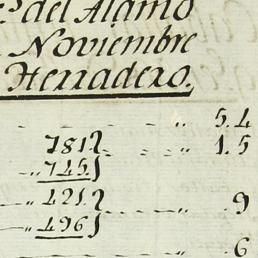 del Alamo
Noviembre
Herradero.
5.4
781.} 1.5
745.}
421.} .9
496.}
.6